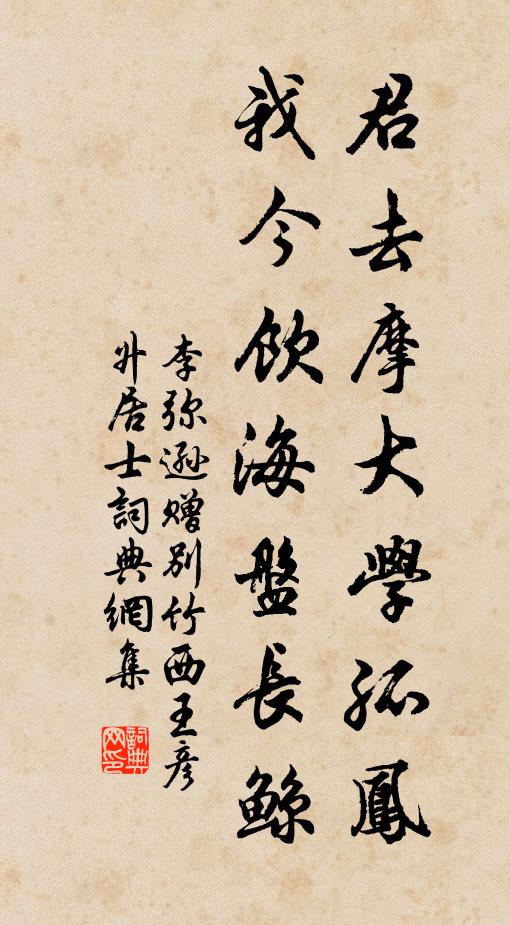 君去摩大學孤鳳
我今飲海盤長鯨
李弥遜赠别竹西王彦
廾居士詞典網集
詞典網印